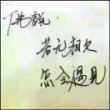 佛說：
若无相欠
怎会遇見